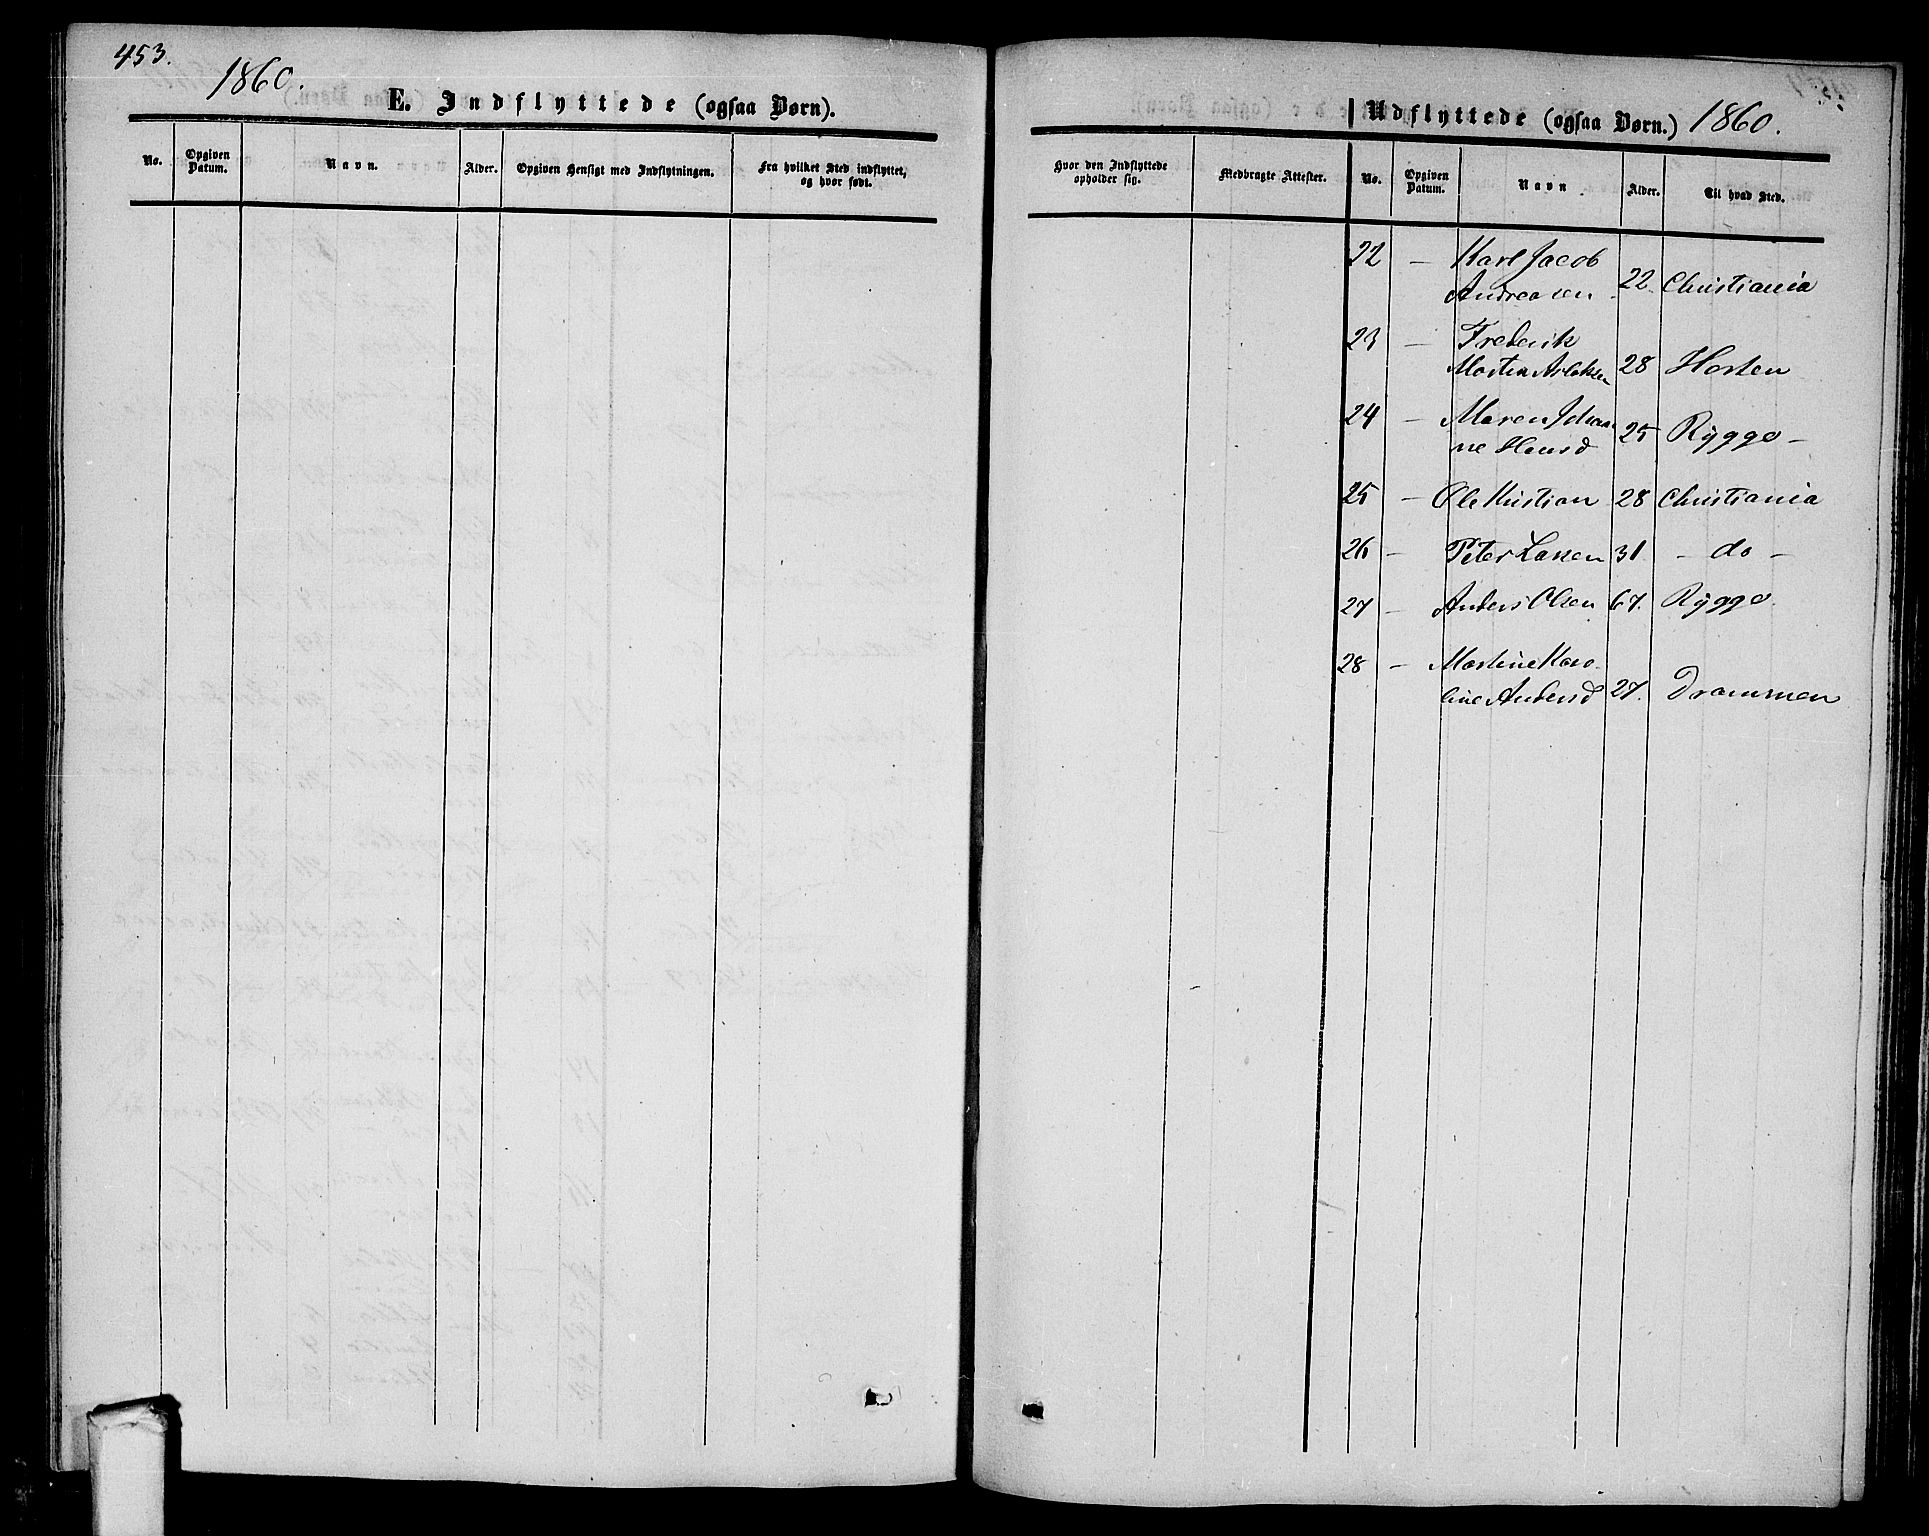 453.
1860.
E. Indflyttede (ogsaa Børn).
No.
Opgiven Datum.
Navn.
Alder.
Opgiven Hensigt med Indflytningen.
Fra hvilket Sted indflyttet, og hvor født.
Udflyttede (ogsaa Børn.) 1860.
Hvor den Indflyttede opholder sig.
Medbragte Attester.
No.
Opgiven Datum.
Navn.
Alder.
Til hvad Sted.
22 — Karl Jacob
Andreasen 22. Christiania
23 — Frederik
Martin Aslaksen 28 Horten
24 — Maren Johan
ne Hansd 25 Rygge —
25 — Ole Kristian 28 Christiania
26 — Peter Larsen 31 — do —
27 — Anders Olsen 67. Rygge.
28 — Martine Karo
line Andersd 27. Drammen